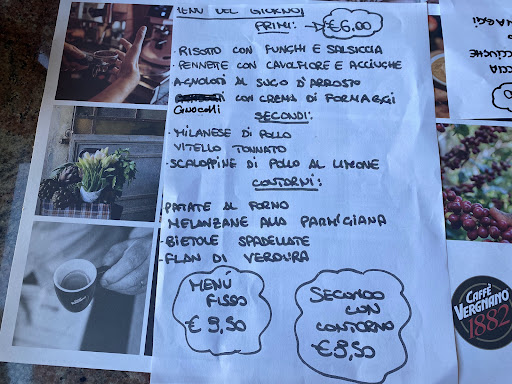 MENÙ DEL GIORNO
PRIMI: → €6,00
• RISOTTO CON FUNGHI E SALSICCIA
• PENNETTE CON CAVOLFIORE E ACCIUGHE
AGNOLOTTI AL SUGO D'ARROSTO
GNOCCHI CON CREMA DI FORMAGGI
SECONDI:
• MILANESE DI POLLO
VITELLO TONNATO
• SCALOPPINE DI POLLO AL LIMONE
CONTORNI:
• PATATE AL FORNO
• MELANZANE ALLA PARMIGIANA
• BIETOLE SPADELLATE
• FLAN DI VERDURA
MENÚ
FISSO
€ 9,50
SECONDO
CON
CONTORNO
€8,50
CAFFÈ
VERGNANO
1882